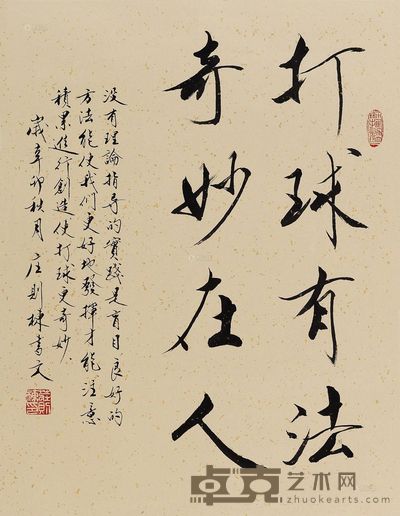 打球有法
奇妙在人
没有理論指导的實踐是盲目良好的
方法能使我们更好地發揮才能注意
積累進行創造使打球更奇妙
歲辛卯秋月庄則棟書文
卓克艺术网
zhuokearts.com